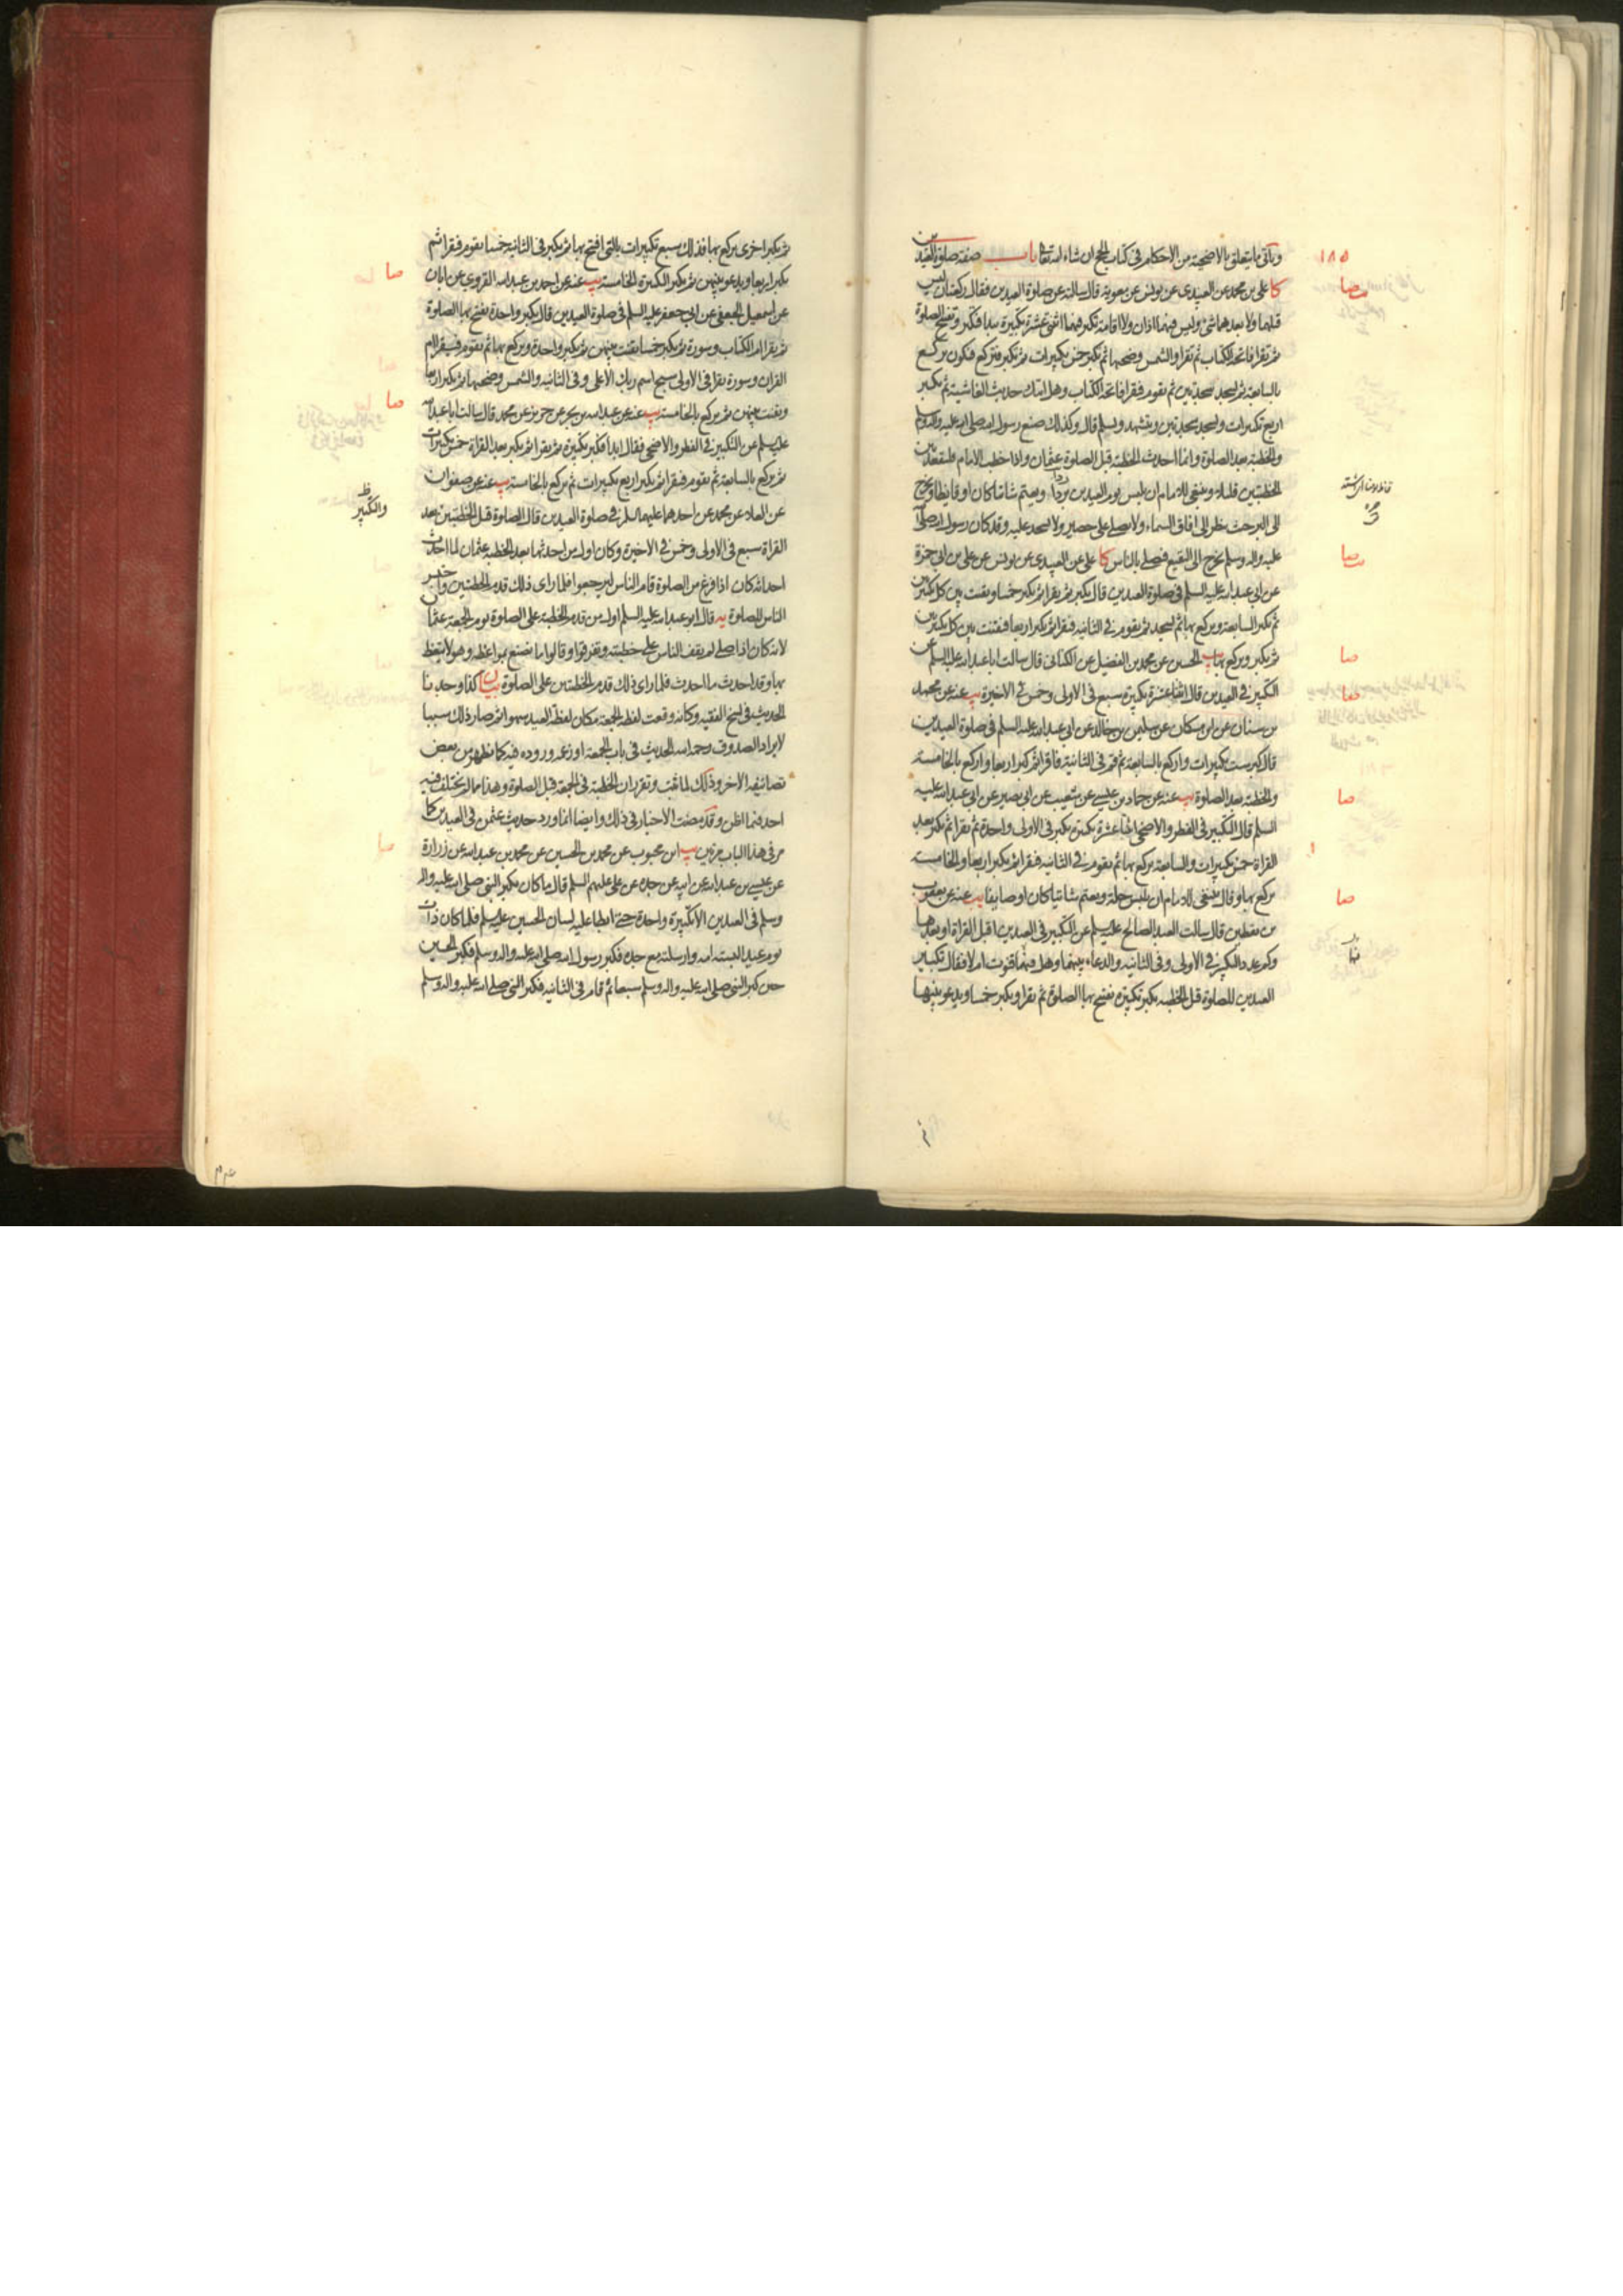 ويأتي ما يتعلق بالاضحية من الاحكام في كتاب الحج ان شاء الله تعالى باب صفة صلوة العيدين
١٨٥
كا على بن محمد عن العبيدى عن يونس عن معوية قال سالته عن صلوة العيدين فقال ركعتان ليس
قبلهما ولا بعدهما شئ وليس فيهما اذان ولا اقامة تكبر فيهما اثنتى عشرة تكبيرة يبدا فيكبر ويفتتح الصلوة
ثم يقرا فاتحة الكتاب ثم يقرا والشمس وضحيها ثم يكبر خمس تكبيرات ثم يكبر فيركع فيكون يركع
بالسابعة ثم يسجد سجدتين ثم يقوم فيقرا فاتحة الكتاب وهل اتيك حديث الغاشية ثم يكبر
اربع تكبيرات ويسجد سجدتين ويتشهد ويسلم قال وكذلك صنع رسول الله صلى الله عليه واله وسلم
والخطبة بعد الصلوة وانما احدث الخطبة قبل الصلوة عثمان واذا خطب الامام فليقعد بين
الخطبتين قليلا وينبغي للامام ان يلبس يوم العيدين بردا ويعتم شاتيا كان او قايظا ويخرج
الى البر حيث ينظر الى افاق السماء ولا يصلى على حصير ولا يسجد عليه وقد كان رسول الله صلى الله
عليه واله وسلم يخرج الى البقيع فيصلى بالناس كا على عن العبيدى عن يونس عن على بن ابي حمزة
عن ابي عبد الله عليه السلم في صلوة العيدين قال يكبر ثم يقرا ثم يكبر خمسا ويقنت بين كل تكبيرتين
ثم يكبر السابعة ويركع بها ثم يسجد ثم يقوم في الثانية فيقرا ثم يكبر اربعا فيقنت بين كل تكبيرتين
ثم يكبر ويركع بها يب الحسين عن محمد بن الفضيل عن الكنانى قال سالت ابا عبد الله عليه السلم عن
التكبير في العيدين قال اثنتا عشرة تكبيرة سبع في الاولى وخمس في الاخيرة يب عنه عن محمد
بن سنان عن ابن مسكان عن سليمن بن خالد عن ابي عبد الله عليه السلم في صلوة العيدين
قال كبر ست تكبيرات واركع بالسابعة ثم قم في الثانية فاقرا ثم كبر اربعا واركع بالخامسة
والخطبة بعد الصلوة يب عنه عن حماد بن عيسى عن شعيب عن ابي بصير عن ابي عبد الله عليه
السلم قال التكبير في الفطر والاضحى اثنتا عشرة تكبيرة يكبر في الاولى واحدة ثم يقرا ثم يكبر بعد
القراة خمس تكبيرات والسابعة يركع بها ثم يقوم في الثانية فيقرا ثم يكبر اربعا والخامسة
يركع بها وقال ينبغي للامام ان يلبس حلة ويعتم شاتيا كان او صايفا يب عنه عن يعقوب
بن يقطين قال سالت العبد الصالح عليه السلم عن التكبير في العيدين اقبل القراة او بعدها
وكم عدد التكبير في الاولى وفي الثانية والدعاء بينهما وهل فيهما قنوت ام لا فقال تكبير
العيدين للصلوة قبل الخطبة يكبر تكبيرة يفتتح بها الصلوة ثم يقرا ويكبر خمسا ويدعو بينها
صا
صا
صا
صا
ثم يكبر اخرى يركع بها فذلك سبع تكبيرات بالتى افتتح بها ثم يكبر في الثانية خمسا يقوم فيقرا ثم
يكبر اربعا ويدعو بينهن ثم يكبر التكبيرة الخامسة يب عنه عن احمد بن عبد الله القروى عن ابان
عن اسمعيل الجعفى عن ابي جعفر عليه السلم في صلوة العيدين قال يكبر واحدة يفتتح بها الصلوة
ثم يقرا ام الكتاب وسورة ثم يكبر خمسا يقنت بينهن ثم يكبر واحدة ويركع بها ثم يقوم فيقرا ام
القران وسورة يقرا في الاولى سبح اسم ربك الاعلى وفي الثانية والشمس وضحيها ثم يكبر اربعا
ويقنت بينهن ثم يركع بالخامسة يب عنه عن عبد الله بن بحر عن حريز عن محمد قال سالت ابا عبد الله
عليه السلم عن التكبير في الفطر والاضحى فقال ابدا فكبر تكبيرة ثم يقرا ثم يكبر بعد القراة خمس تكبيرات
ثم يركع بالسابعة ثم يقوم فيقرا ثم يكبر اربع تكبيرات ثم يركع بالخامسة يب عنه عن صفوان
عن العلاء عن محمد عن احدهما عليهما السلم في صلوة العيدين قال الصلوة قبل الخطبتين بعد
القراة سبع في الاولى وخمس في الاخيرة وكان اول من احدثها بعد الخطبة عثمان لما احدث
احداثه كان اذا فرغ من الصلوة قام الناس ليرجعوا فلما راى ذلك قدم الخطبتين واحتبس
الناس للصلوة يه قال ابو عبد الله عليه السلم اول من قدم الخطبة على الصلوة يوم الجمعة عثمان
لانه كان اذا صلى لم يقف الناس على خطبته وتفرقوا وقالوا ما نصنع بمواعظه وهو لا يتعظ
بها وقد احدث ما احدث فلما راى ذلك قدم الخطبتين على الصلوة بيان كذا وجدنا
الحديث في نسخ الفقيه وكانه وقعت لفظة الجمعة مكان لفظة العيد سهوا ثم صار ذلك سببا
لايراد الصدوق رحمه الله الحديث في باب الجمعة او زعمه وروده فيه كما يظهر من بعض
تصانيفه الاخر وذلك لما ثبت وتقرر ان الخطبة في الجمعة قبل الصلوة وهذا مما لم يختلف فيه
احد فيما اظن وقد مضت الاخبار في ذلك وايضا انما ورد حديث عثمن في العيدين كما
مر في هذا الباب مرتين يب ابن محبوب عن محمد بن الحسين عن محمد بن عبد الله عن زرارة
عن عيسى بن عبد الله عن ابيه عن جده عن على عليهم السلم قال ما كان يكبر النبى صلى الله عليه واله
وسلم في العيدين الا تكبيرة واحدة حتى ابطا عليه لسان الحسين عليه السلم فلما كان ذات
يوم عيد البسته امه وارسلته مع جده فكبر رسول الله صلى الله عليه واله وسلم فكبر الحسين
حين كبر النبى صلى الله عليه واله وسلم سبعا ثم قام في الثانية فكبر النبى صلى الله عليه واله وسلم
صا
صا
والتكبير
صا